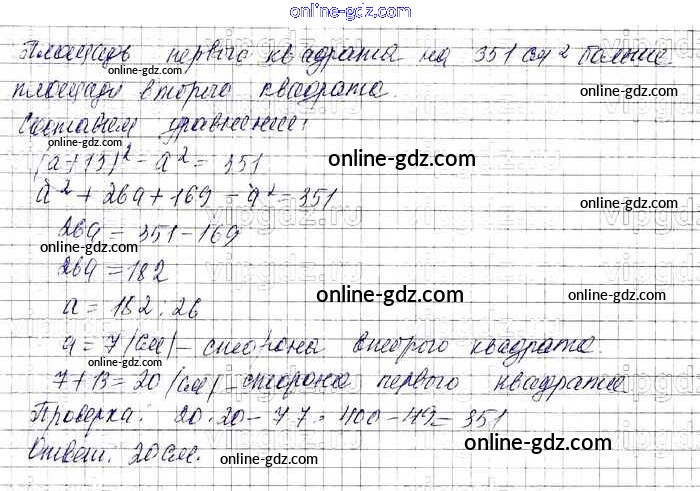 online-gdz.com
Площадь первого квадрата на 351 см 2 больше
online-gdz.com
площади второго квадрата.
online-gdz.com
online-gdz.com
Составим уравнение:
(a+13)² - a² = 351
online-gdz.com
a² + 26a + 169 - a² = 351
vipgdz.ru
26a = 351 - 169
online-gdz.com
online-gdz.com
26a = 182
online-gdz.com
a = 182 : 26
a = 7 (см) - сторона второго квадрата.
online-gdz.com
7 + 13 = 20 (см) - сторона первого квадрата
Проверка: 20 · 20 - 7 7 = 400 - 49 = 351
online-gdz.com
Ответ. 20 см.
online-gdz.com
online-gdz.com